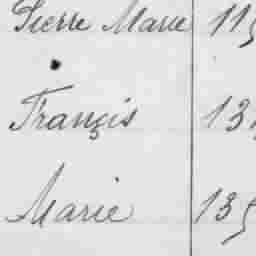 Pierre Marie 115
Françis 13
Marie 135